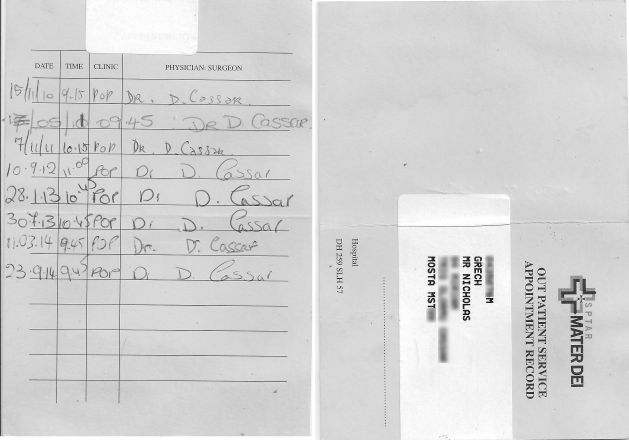 DATE TIME CLINIC PHYSICIAN: SURGEON
15/11/10 9.15 POP DR. D. Cassar.
/05/ 09.45 DR D. Cassar
7/11/11 10.15 POP DR D. Cassar
10.9.12 11.00 POP Dr D. Cassar
28.1.13 10.45 POP Dr D. Cassar
30.7.13 10.45 POP Dr D. Cassar
11.03.14 9.45 POP Dr. D. Cassar
23.9.14 9.45 POP Dr D. Cassar
SPTAR
MATER DEI
OUT PATIENT SERVICE
APPOINTMENT RECORD
M
GRECH
MR NICHOLAS
MOSTA MST
Hospital
DH 259 SLH 57